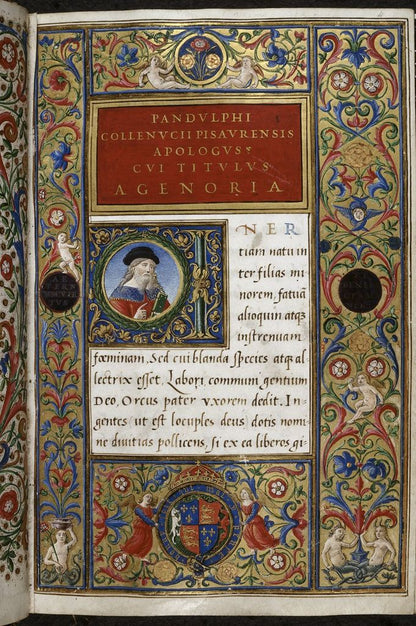 PANDVLPHI
COLLENVCII PISAVRENSIS
APOLOGVS
CVI TITVLVS
AGENORIA
INER
tiam natu in
ter filias mi
norem, fatuā
alioquin atqɜ
instrenuam
fœminam, Sed cui blanda species atqɜ al
lectrix esset, Labori communi gentium
Deo, Orcus pater vxorem dedit. In-
gentes ut est locuples deus dotis nomi
ne diuitias pollicens, si ex ea liberos gi-